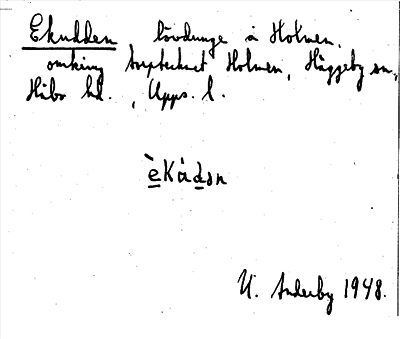 Ekudden lövdunge å Holmen,
omkring torptecknet Holmen, Häggeby sn,
Håbo hd., Upps. l.
èkàdən
U. Anderby 1948.